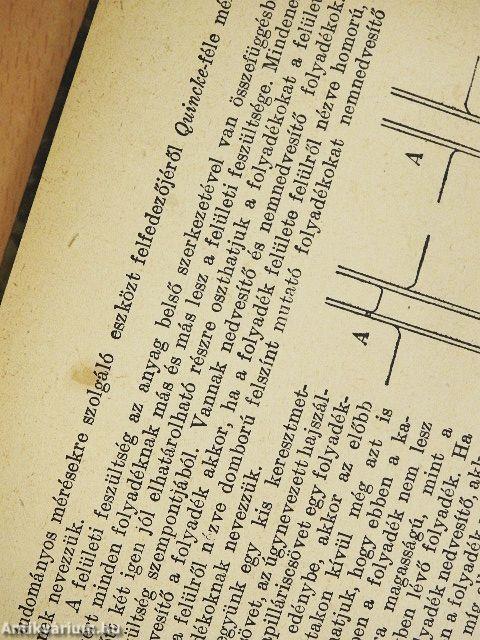 dományos mérésekre szolgáló eszközt felfedezőjéről Quincke-féle mé
k nevezzük.
A felületi feszültség az anyag belső szerkezetével van összefüggésb
minden folyadéknak más és más lesz a felületi feszültsége. Mindene
két igen jól elhatárolható részre oszthatjuk a folyadékokat a felület
ültség szempontjából. Vannak nedvesítő és nemnedvesítő folyadékok.
vesítő a folyadék akkor, ha a folyadék felülete felülről nézve homorú,
a felülről nézve domború felszínt mutató folyadékokat nemnedvesítő
dékoknak nevezzük.
együnk egy kis keresztmet-
övet, az úgynevezett hajszál-
pillárisesövet egy folyadék-
edénybe, akkor az előbb
akon kívül még azt is
hatjuk, hogy ebben a ka-
ben a folyadék nem lesz
a magasságú, mint a
ben lévő folyadék. Ha
yadék nedvesítő, akk
A
A
Antikvarium.hu